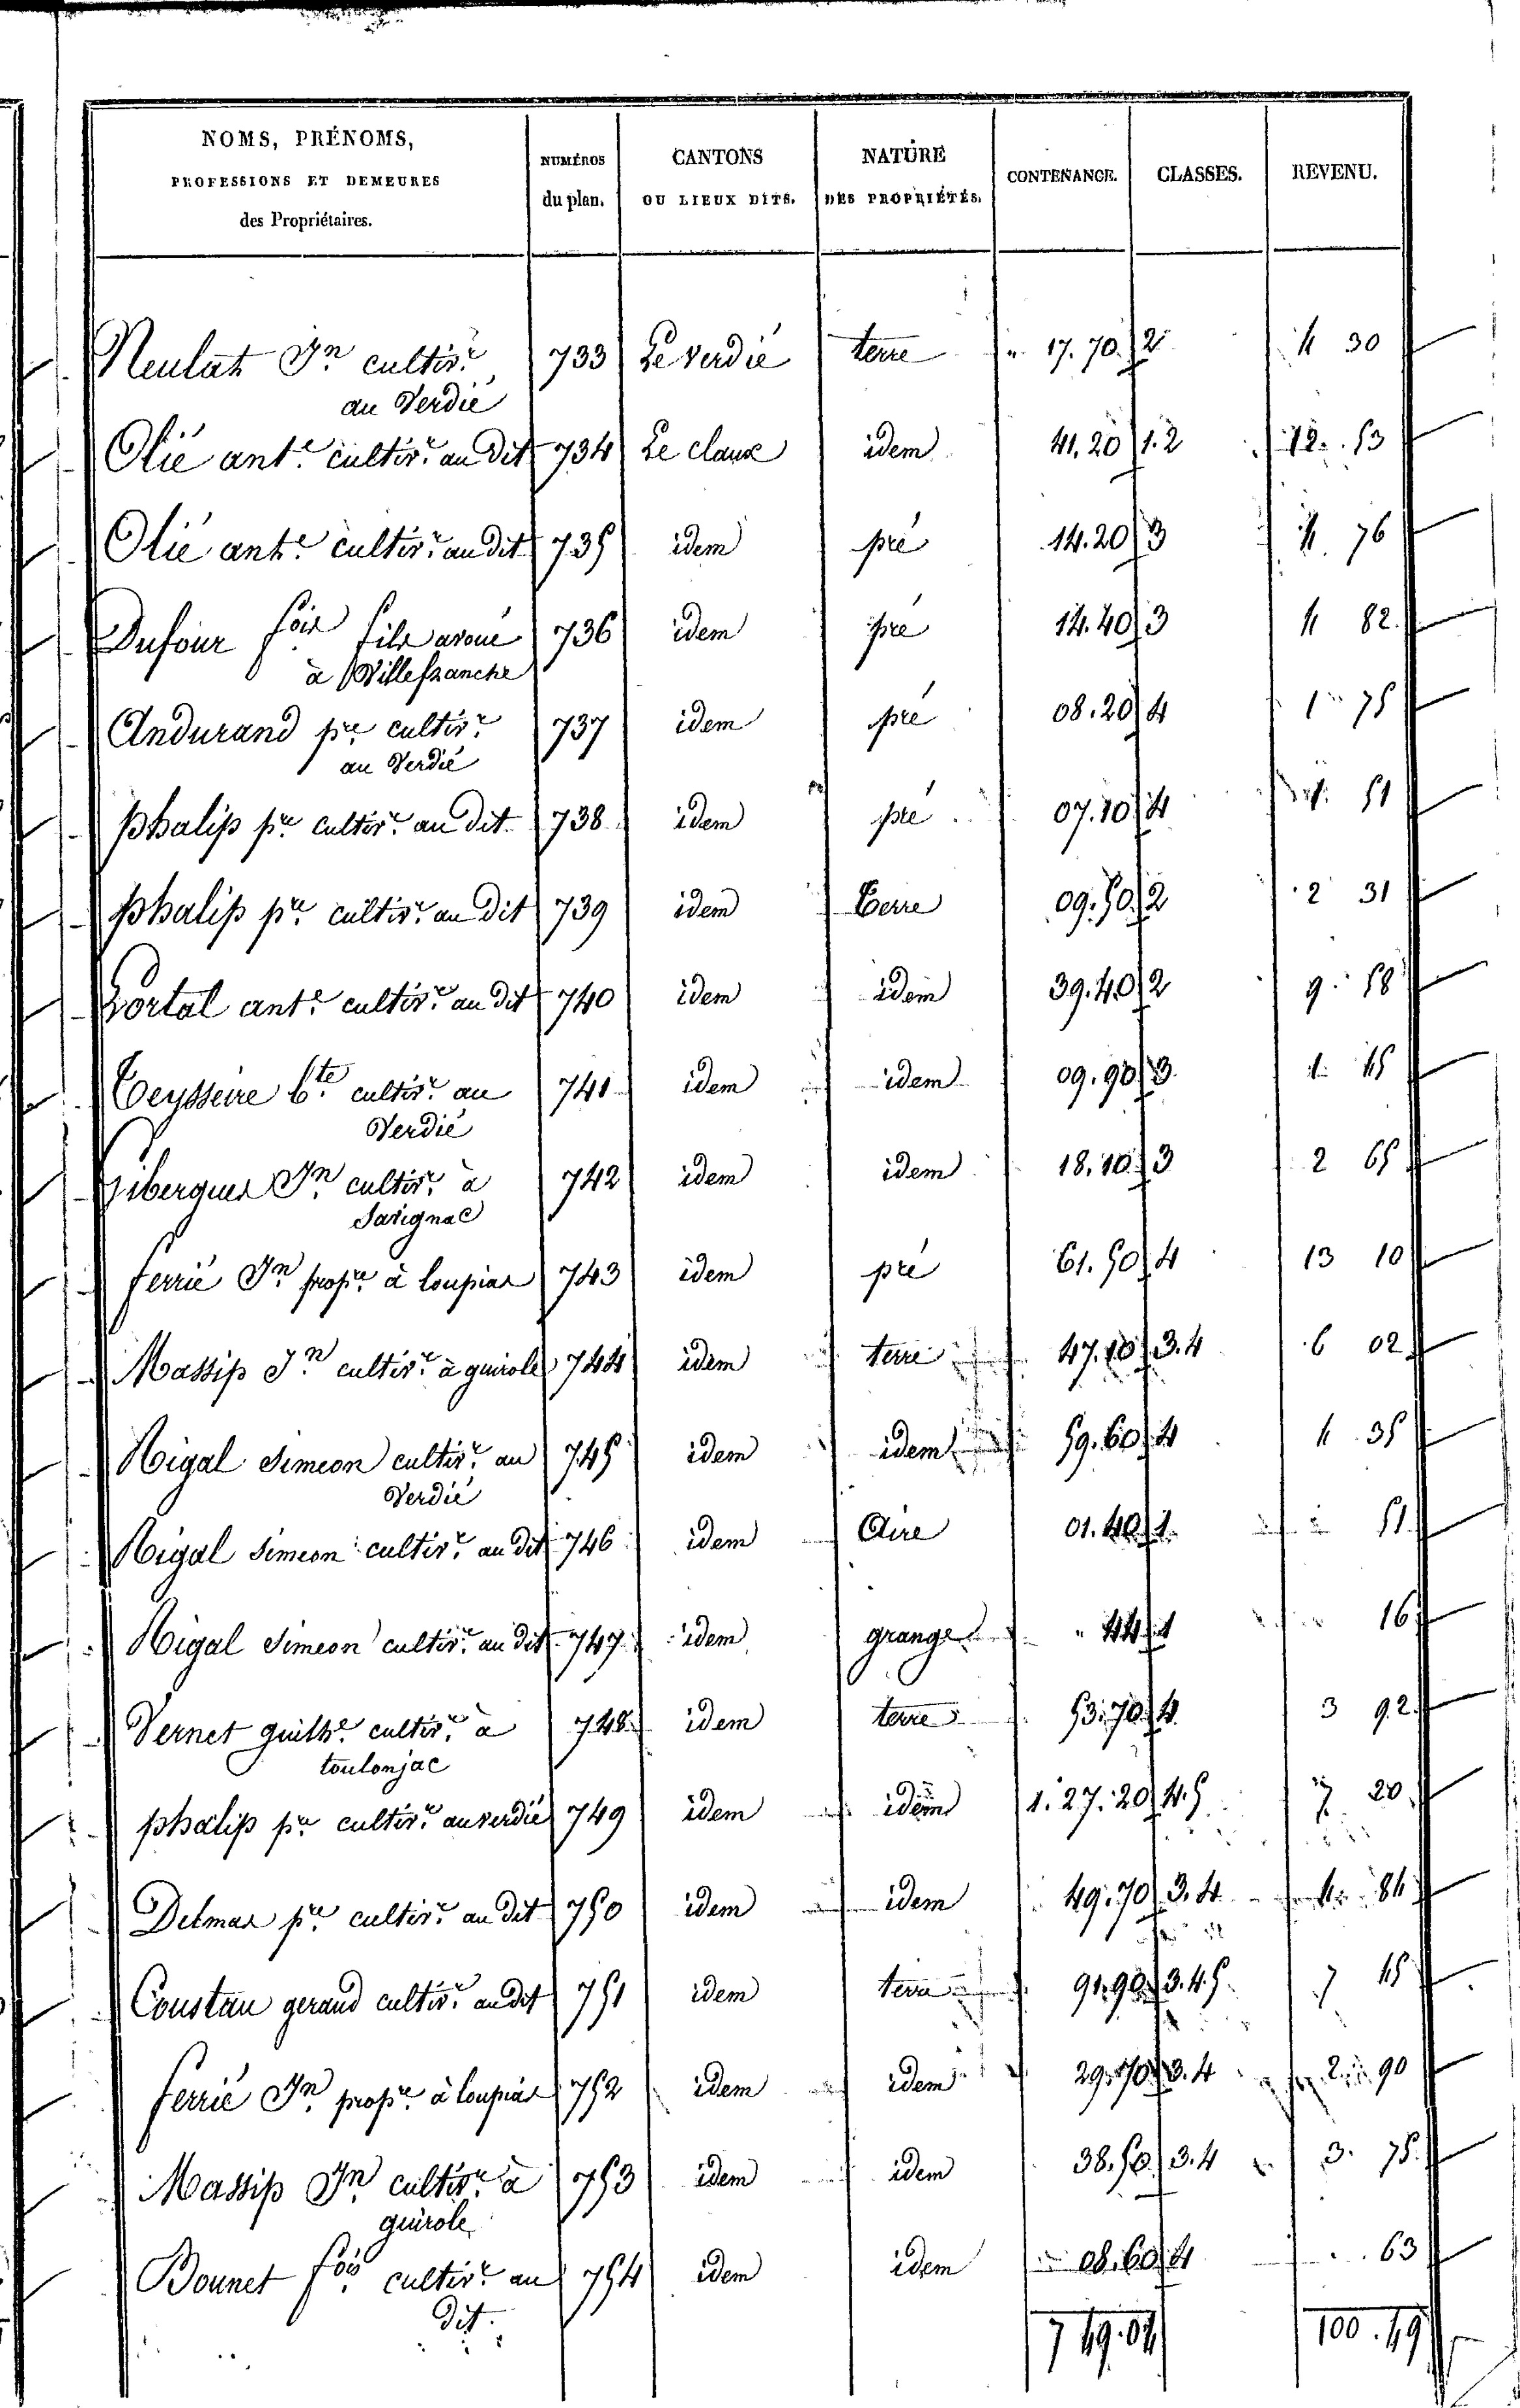 NOMS, PRÉNOMS, PROFESSIONS ET DEMEURES des Propriétaires. NUMÉROS du plan. CANTONS OU LIEUX DITS. NATURE DES PROPRIÉTÉS. CONTENANCE. CLASSES. REVENU.
Neulat Jn cultivr 733 Le Verdié terre " 17.70 2 4 30
au Verdié
Olié ante cultivr au dit 734 Le claux idem 41.20 1.2 12 53
Olié ante cultivr au dit 735 idem pré 14.20 3 4 76
Dufour fois fils avoué 736 idem pré 14.40 3 4 82
à Villefranche
Andurand pre cultivr 737 idem pré 08.20 4 1 75
au Verdié
phalip pre cultivr au dit 738 idem pré 07.10 4 1 51
phalip pre cultivr au dit 739 idem terre 09.50 2 2 31
Portal ante cultivr au dit 740 idem idem 39.40 2 9 58
Teysseire bte cultivr au 741 idem idem 09.90 3 1 45
Verdié
Gibergues Jn cultivr à 742 idem idem 18.10 3 2 65
Savignac
ferrié Jn propre à loupias 743 idem pré 61.50 4 13 10
Massip Jn cultivr à guirole 744 idem terre 47.10 3.4 6 02
Rigal Simeon cultivr au 745 idem idem 59.60 4 4 35
Verdié
Rigal Simeon cultivr au dit 746 idem Aire 01.40 1 51
Rigal Simeon cultivr au dit 747 idem grange " 44 1 16
Vernet guilhe cultivr à 748 idem terre 53.70 4 3 92
toulonjac
phalip pre cultivr au verdié 749 idem idem 1.27.20 4.5 7 20
Delmas pre cultivr au dit 750 idem idem 49.70 3.4 4 84
Coustau geraud cultivr au dit 751 idem terre 91.90 3.4.5 7 45
ferrié Jn propre à loupias 752 idem idem 29.70 3.4 2 90
Massip Jn cultivr à 753 idem idem 38.50 3.4 3 75
guirole
Bounet fois cultivr au 754 idem idem 08.60 4 63
dit
7 49.04 100.49